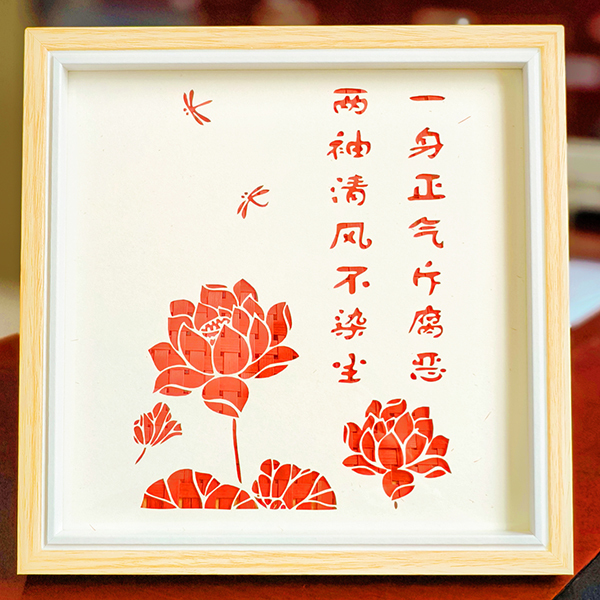 一身正气斥腐恶
两袖清风不染尘